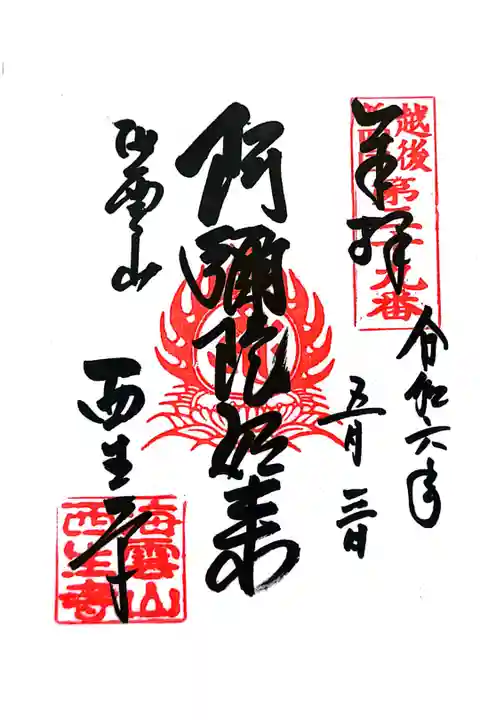 奉拝
越後
第二十九番
令和六年
五月三日
阿彌陀如来
海雲山
西生寺
海雲山
西生寺